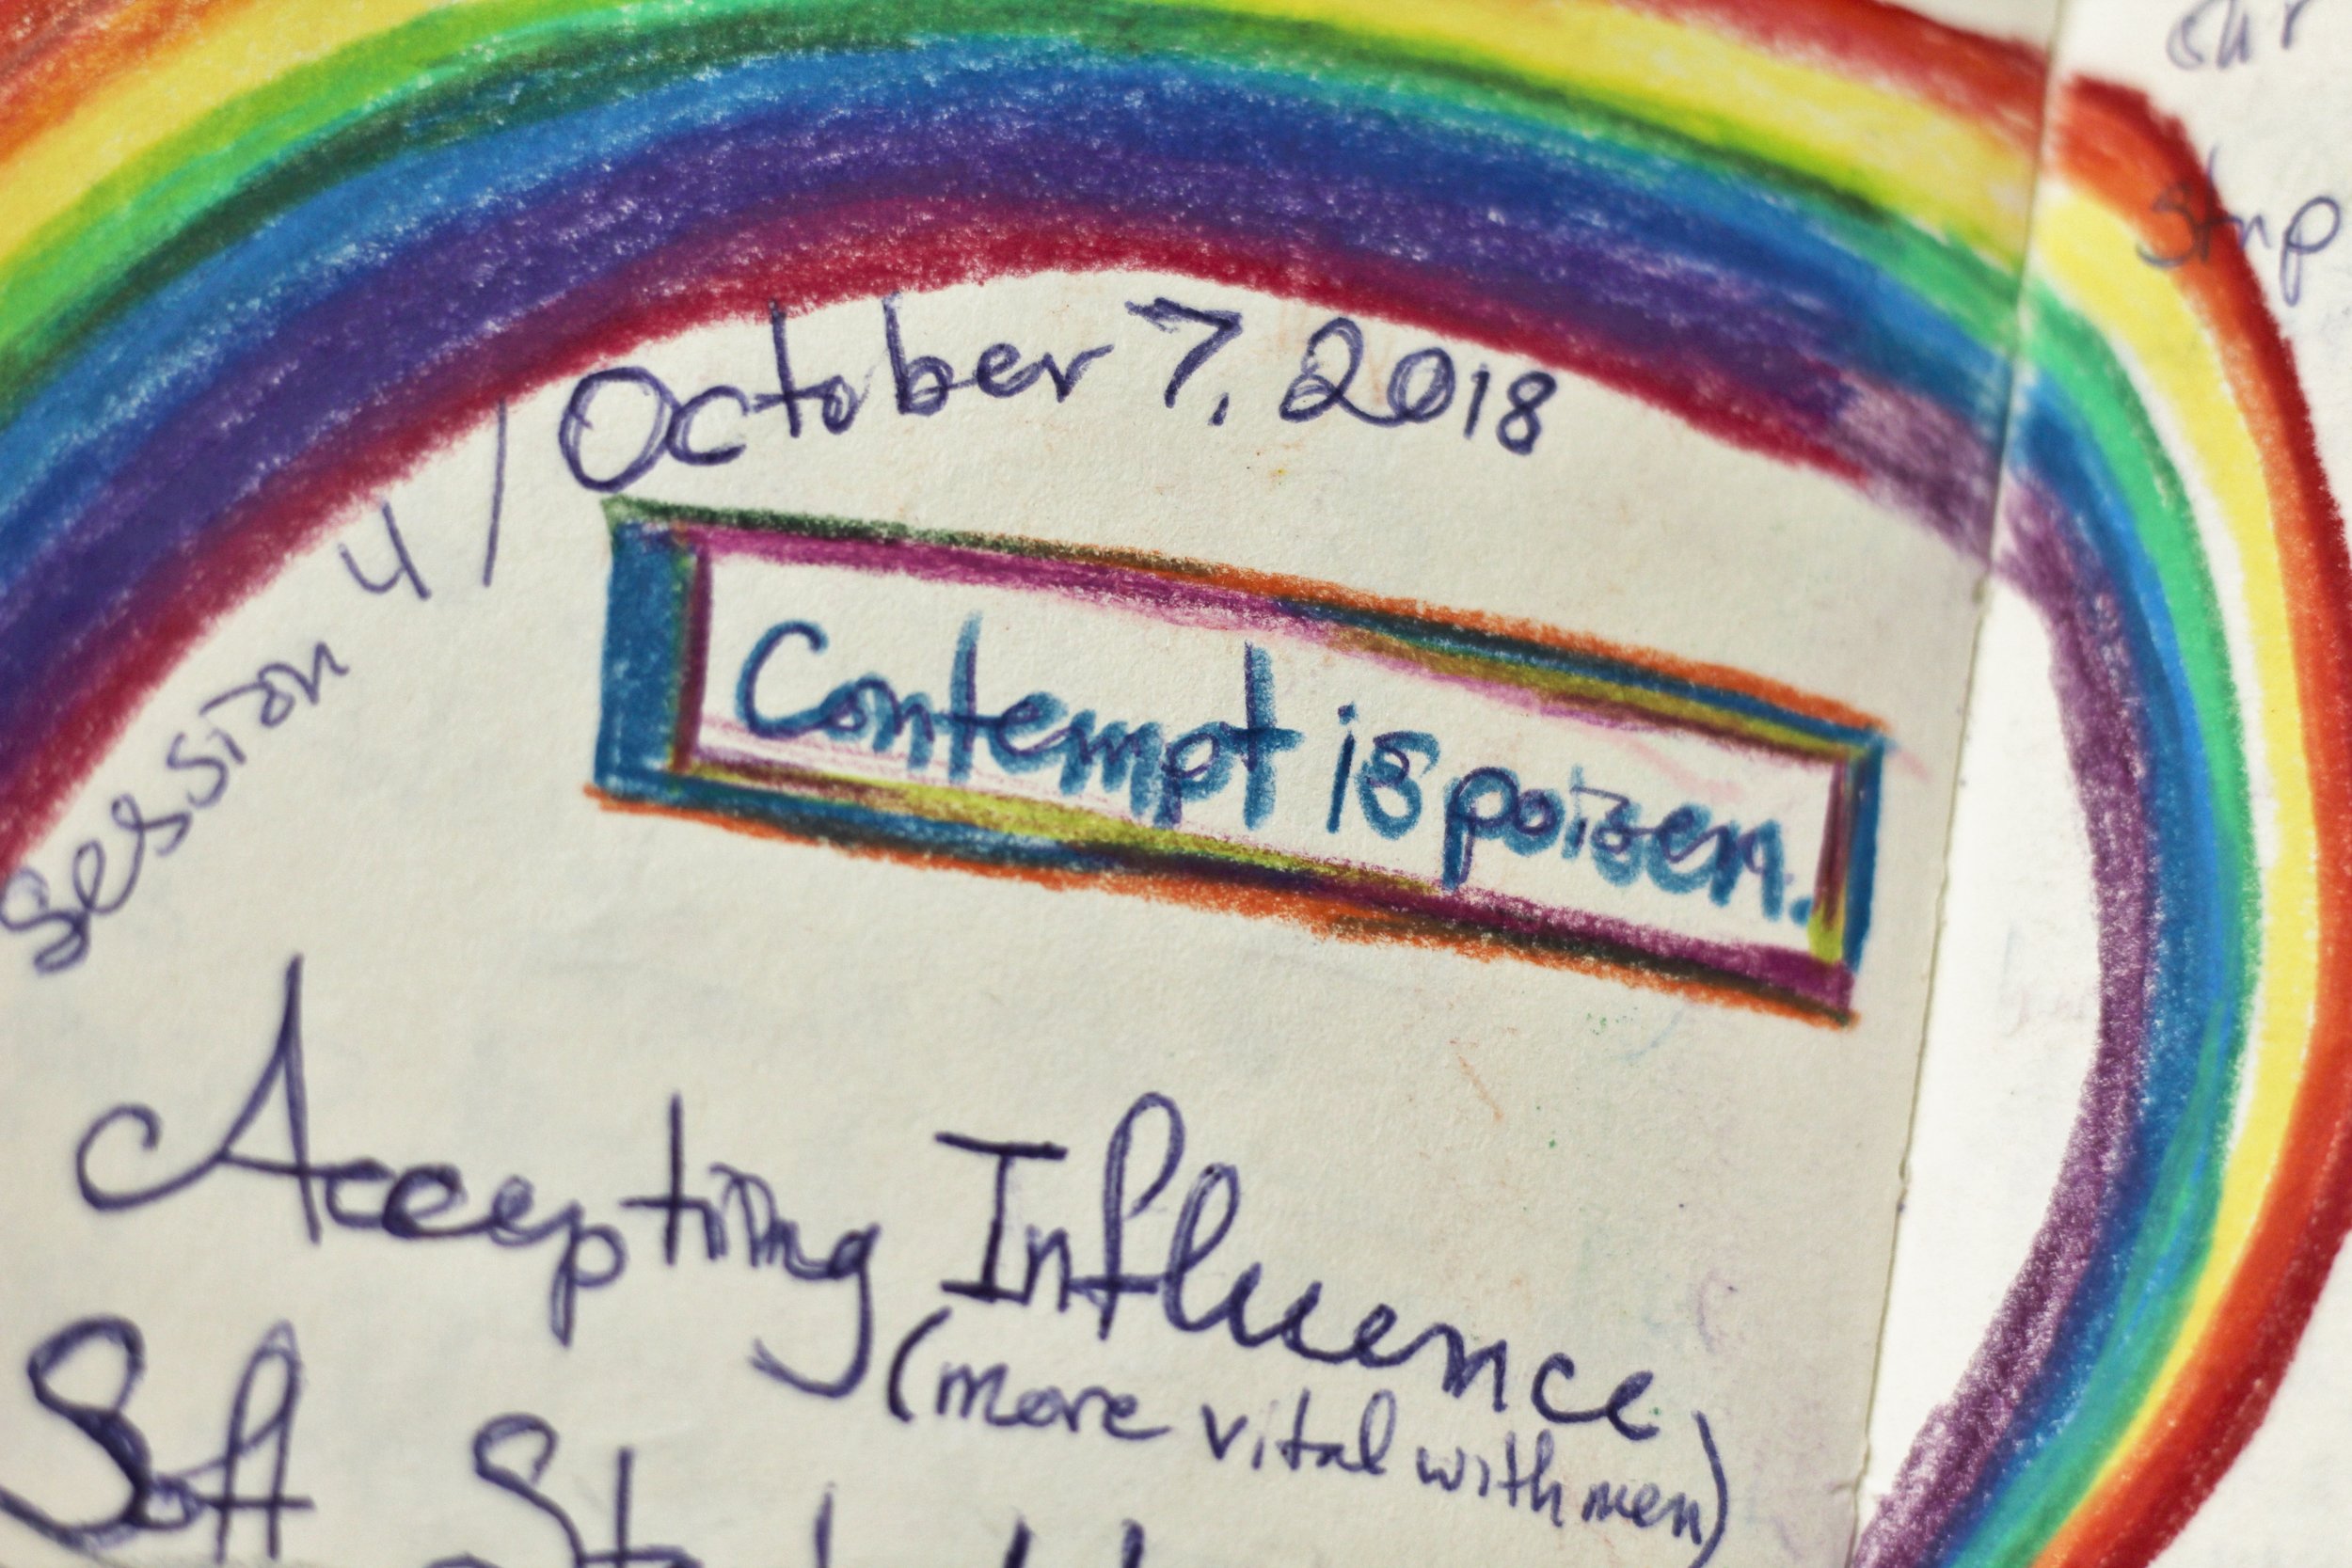 Session 4 / October 7, 2018
Contempt is poizen.
Accepting Influence
(more vital with men)
Soft